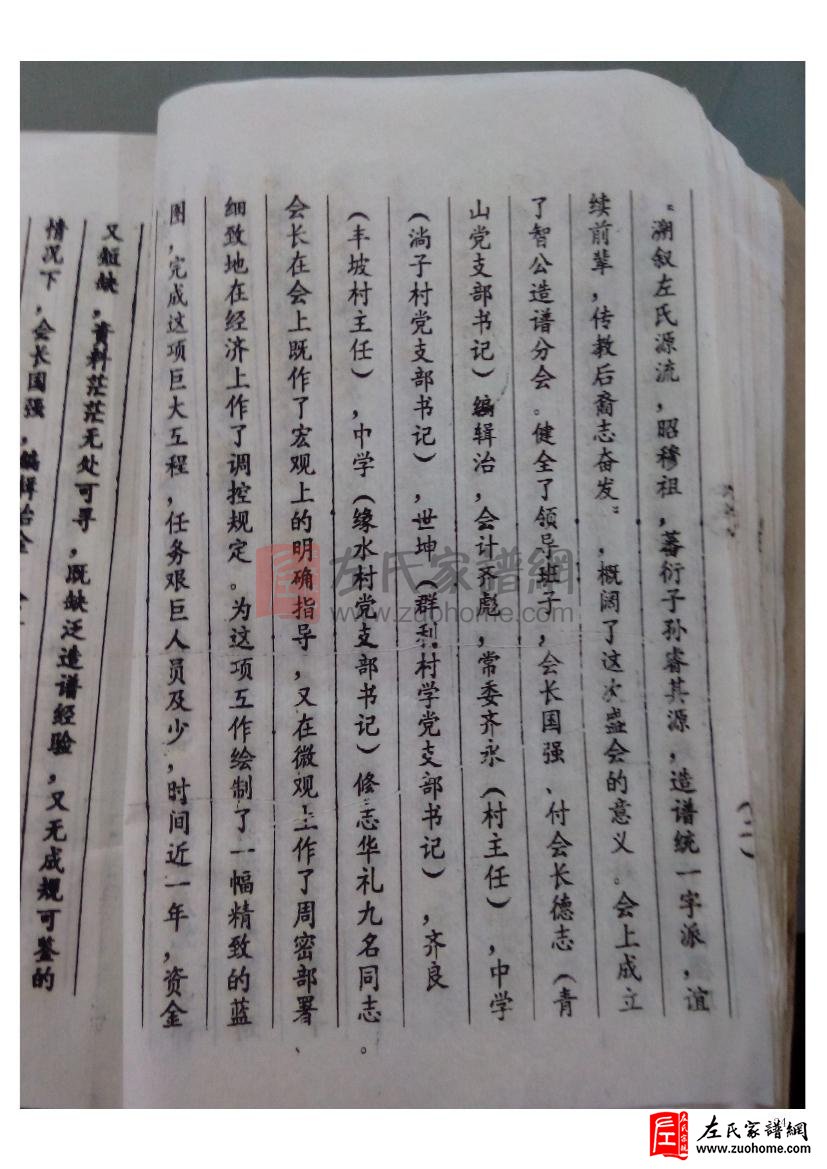 (二)
“溯叙左氏源流，昭穆祖，蕃衍子孙睿其源，造谱统一字派，谊
续前辈，传教后裔志奋发”，概阔了这次盛会的意义。会上成立
了智公造谱分会。健全了领导班子，会长国强、付会长德志（青
山党支部书记）编辑治，会计齐彪，常委齐永（村主任），中学
（淌子村党支部书记），世坤（群利村学党支部书记），齐良
（丰坡村主任），中学（缘水村党支部书记）修志华礼九名同志。
会长在会上既作了宏观上的明确指导，又在微观上作了周密部署、
细致地在经济上作了调控规定。为这项工作绘制了一幅精致的蓝
图，完成这项巨大工程，任务艰巨人员及少，时间近一年，资金
又短缺，资料茫茫无处可寻，既缺泛造谱经验，又无成规可鉴的
情况下，会长国强，编辑治全
左氏家谱網
www.zuohome.com
左氏家谱網
www.zuohome.com